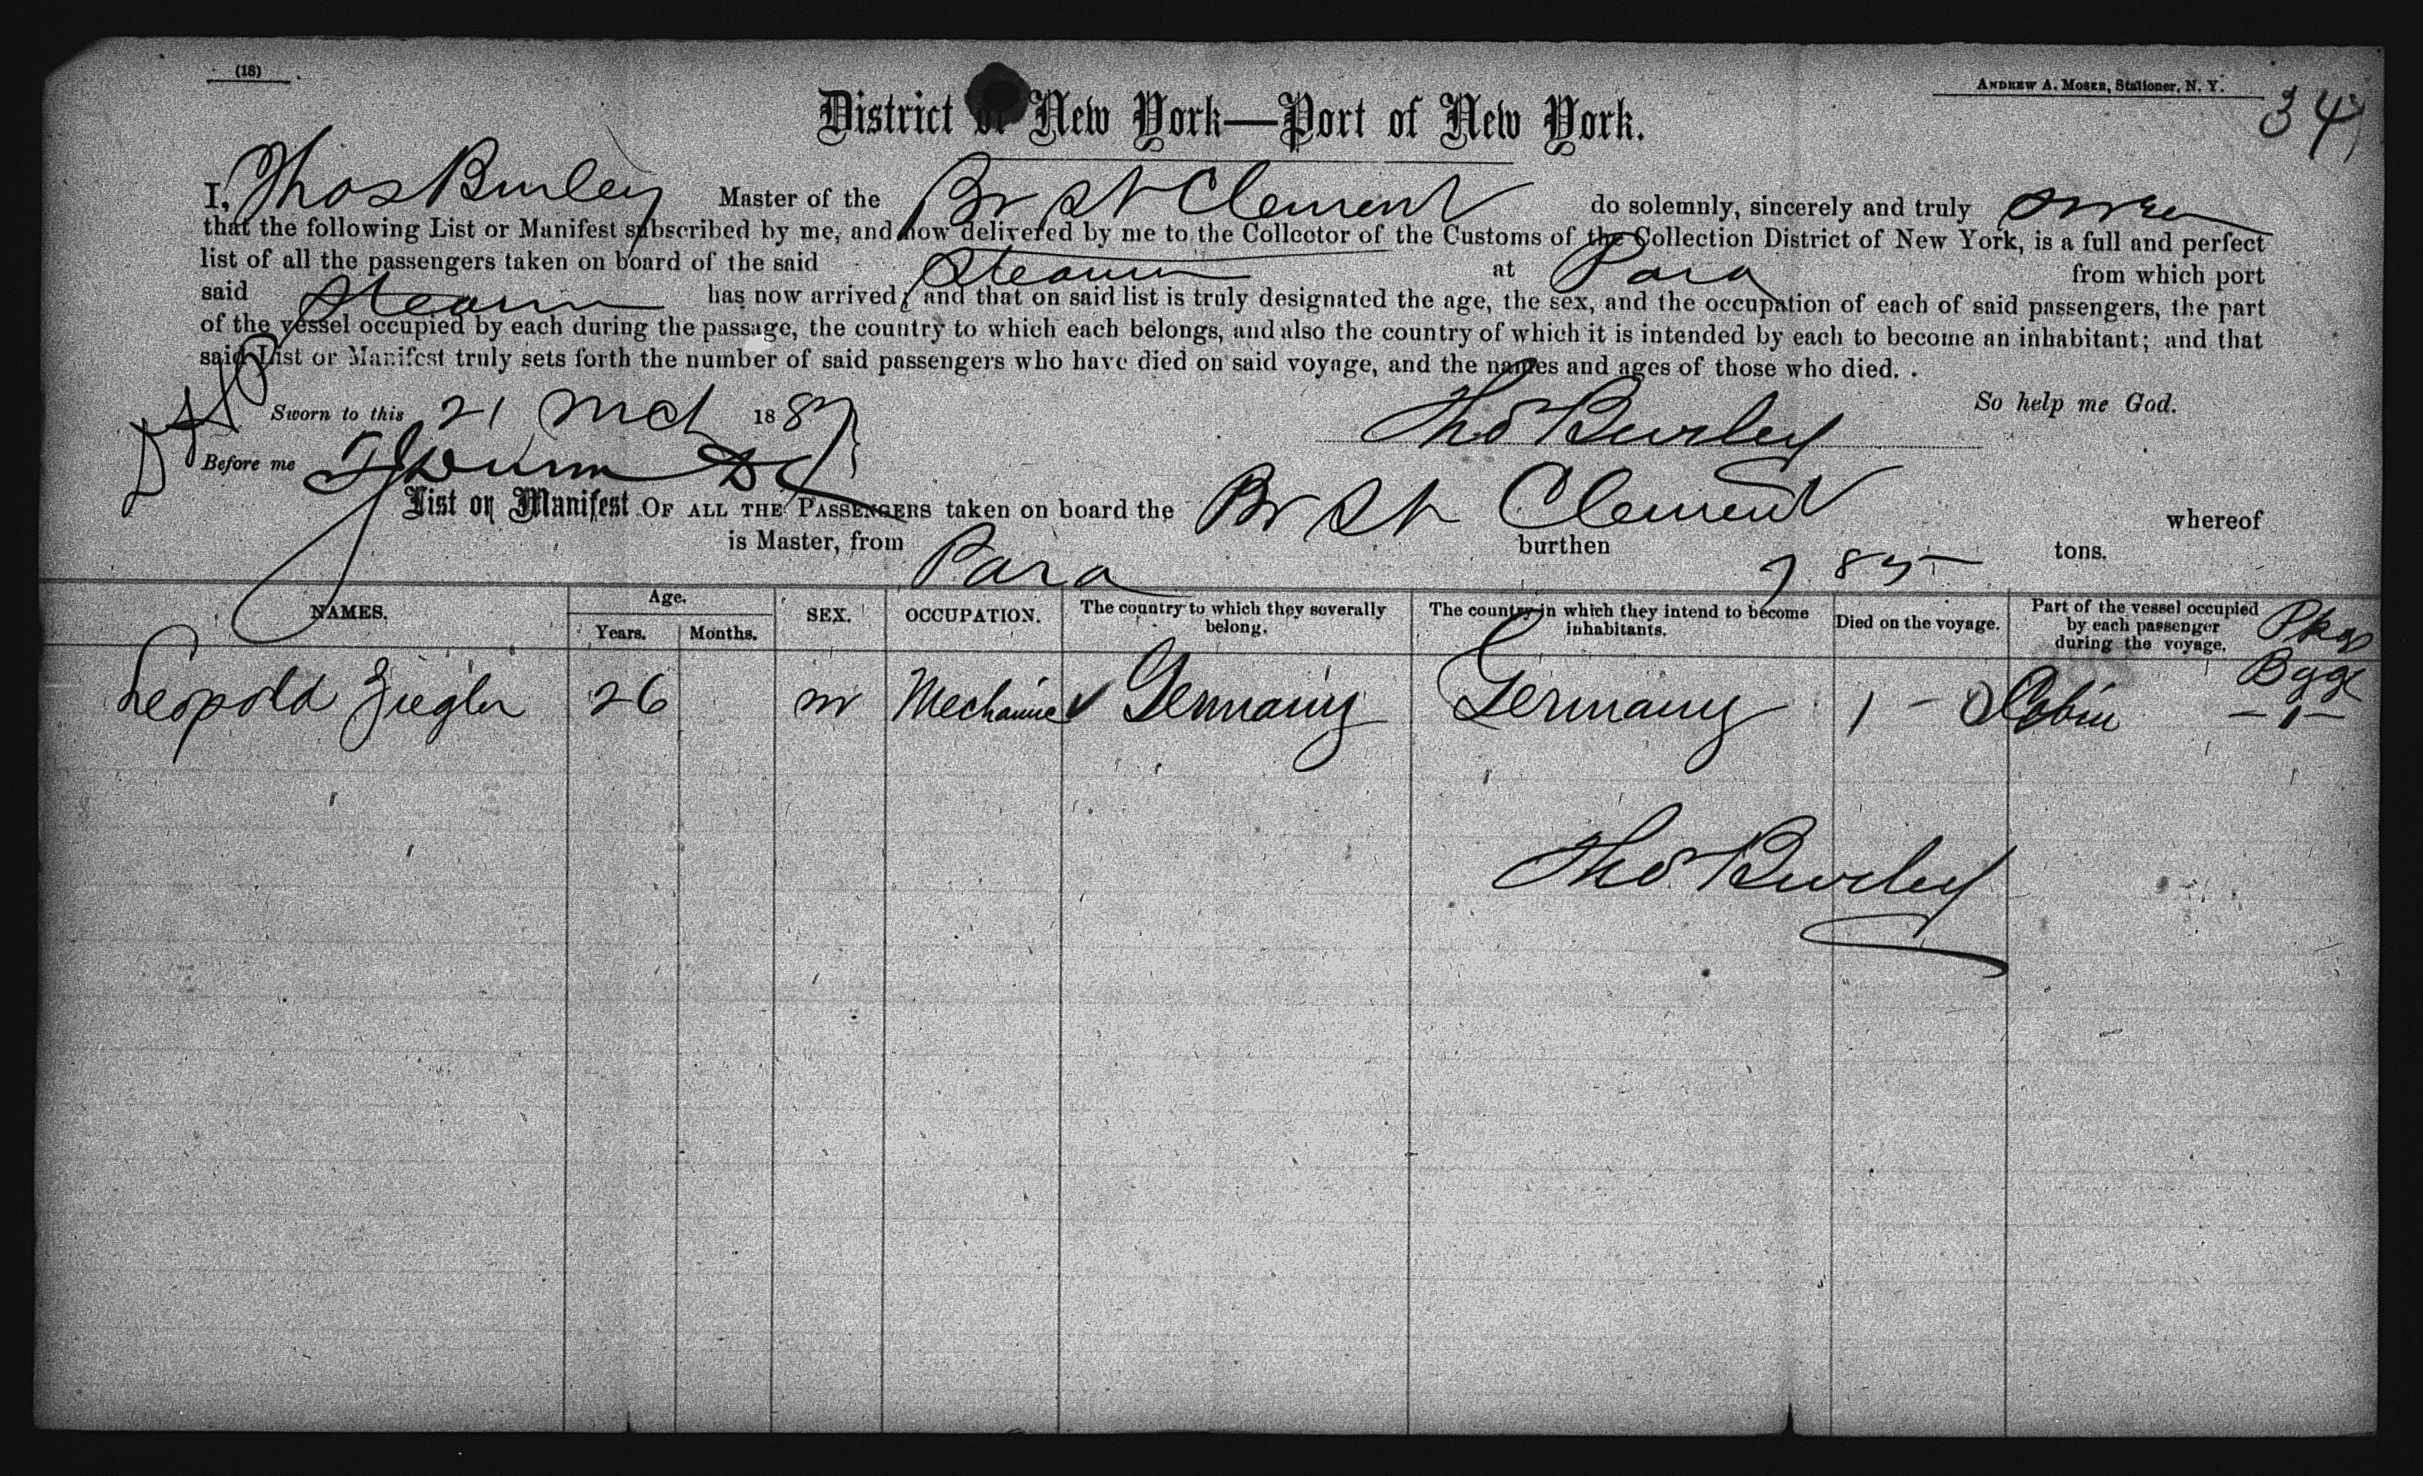 (18)
ANDREW A. MOSER, Stationer, N. Y.
347
District of New York—Port of New York.
I, Thos Burley Master of the Br Str Clement do solemnly, sincerely and truly swear
that the following List or Manifest subscribed by me, and now delivered by me to the Collector of the Customs of the Collection District of New York, is a full and perfect
list of all the passengers taken on board of the said Steamr at Para from which port
said Steamr has now arrived; and that on said list is truly designated the age, the sex, and the occupation of each of said passengers, the part
of the vessel occupied by each during the passage, the country to which each belongs, and also the country of which it is intended by each to become an inhabitant; and that
said List or Manifest truly sets forth the number of said passengers who have died on said voyage, and the names and ages of those who died.
So help me God.
Sworn to this 21 Mch 1887
Tho Burley
Before me
List or Manifest OF ALL THE PASSENGERS taken on board the Br Str Clement whereof
is Master, from Para burthen tons.
NAMES. Age. Years. Months. SEX. OCCUPATION. The country to which they severally belong. The country in which they intend to become inhabitants. Died on the voyage. Part of the vessel occupied by each passenger during the voyage. Pkgs Bgge
Leopold Ziegler 26 m Mechanic Germany Germany 1 - Cabin - 1 -
Tho Burley